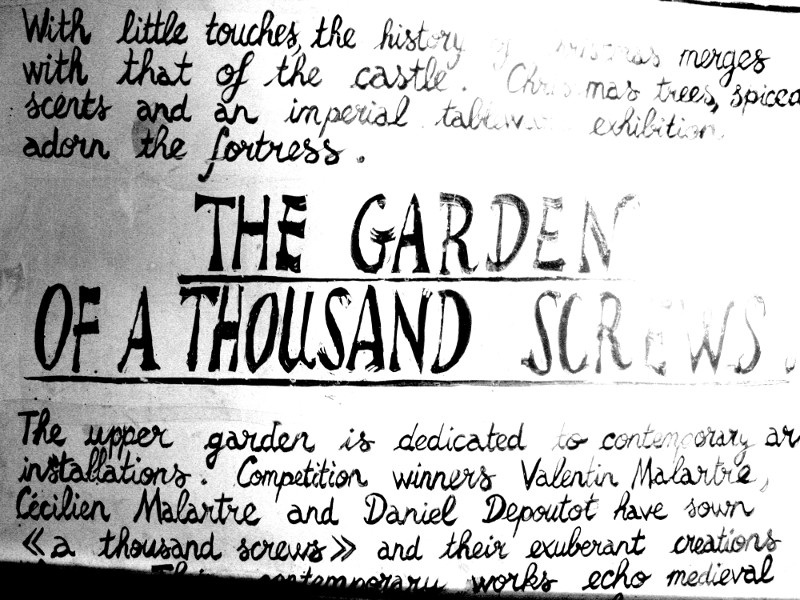 With little touches, the history of Christmas merges
with that of the castle. Christmas trees, spiced
scents and an imperial exhibition
adorn the fortress.
THE GARDEN
OF A THOUSAND SCREWS.
The upper garden is dedicated to contemporary
installations. Competition winners Valentin Malartre,
Cécilien Malartre and Daniel Depoutot have sown
«a thousand screws» and their exuberant creations
contemporary works echo medieval